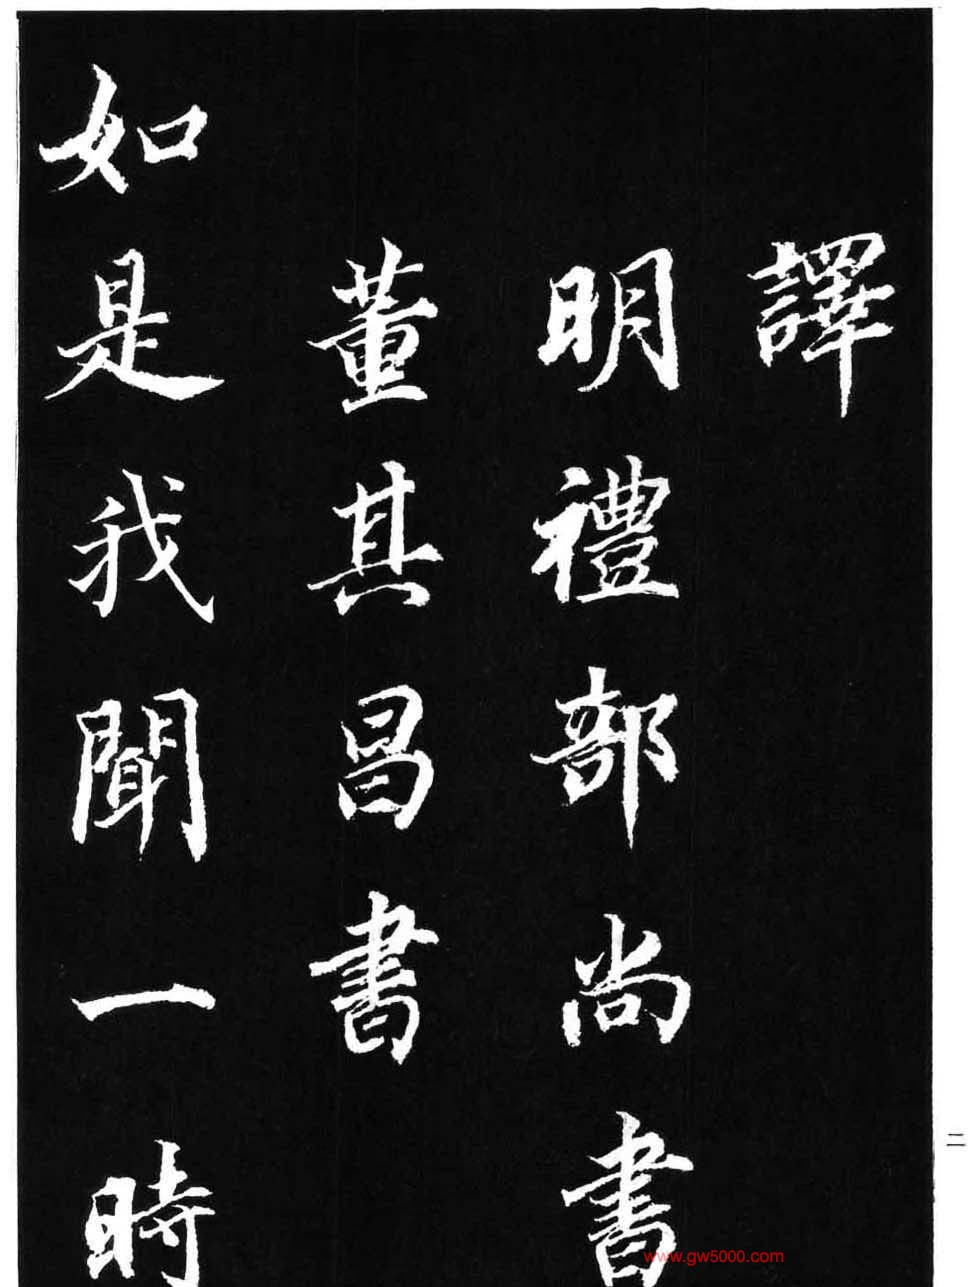 譯
明禮部尚書
董其昌書
如是我聞一時
二
www.gw5000.com